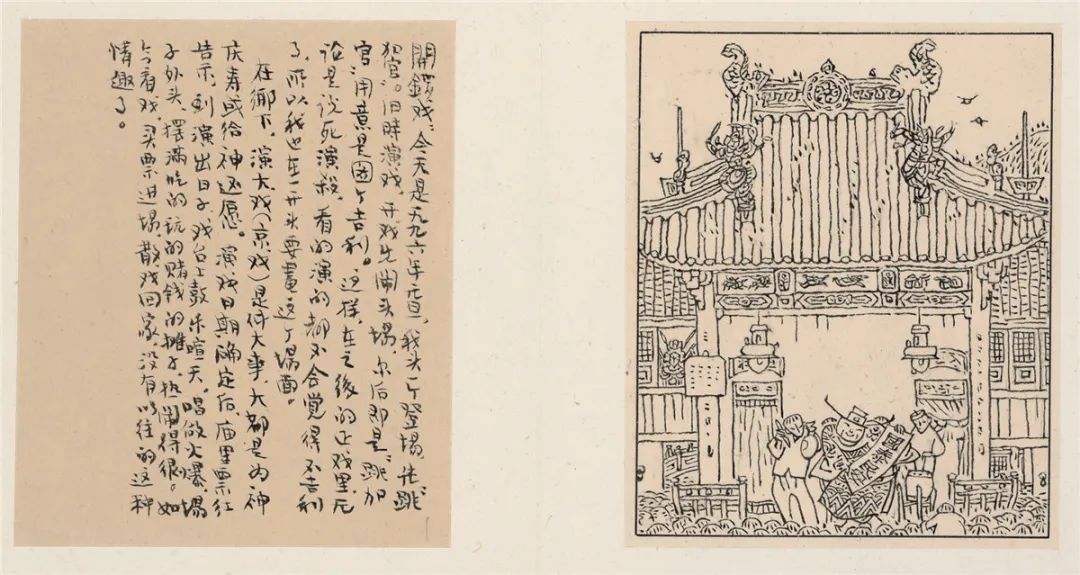 開鑼戏:今天是一九九六年元旦,我头一个登場,先“跳
加官”。旧時演戏,开戏先闹头場,尔后即是“跳加
官”,用意是图个吉利。这样,在之後的正戏里,无
论是说死演殺,看的演的都不会觉得不吉利
了,所以我也在一开头要畫这个場面。
在鄉下,演大戏(京戏)是件大事,大都是为神
庆寿或给神还愿。演戏日期确定后,庙里票红
告示,到演出日子,戏台上鼓乐喧天,唱做火爆,場
子外头,摆满吃的玩的赌钱的摊子,热闹得很。如
今看戏,买票进場,散戏回家,没有以往的这种
情趣了。